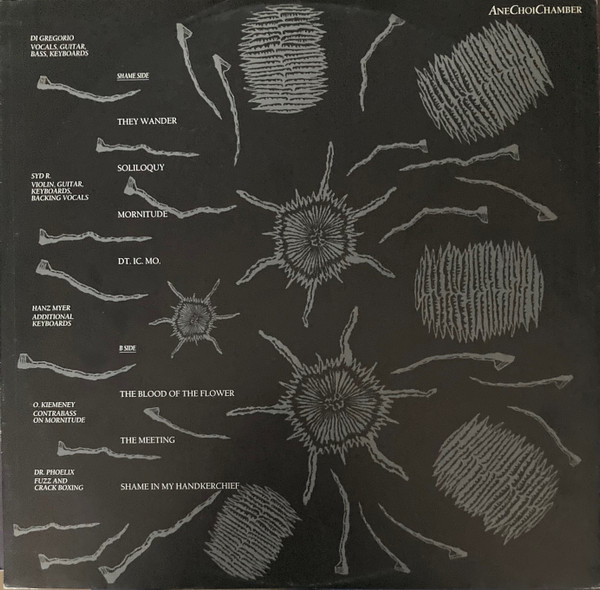 ANECHOICHAMBER
DI GREGORIO
VOCALS, GUITAR,
BASS, KEYBOARDS
SHAME SIDE
THEY WANDER
SOLILOQUY
SYD R.
VIOLIN, GUITAR,
KEYBOARDS,
BACKING VOCALS
MORNITUDE
DT. IC. MO.
HANZ MYER
ADDITIONAL
KEYBOARDS
B SIDE
THE BLOOD OF THE FLOWER
O. KIEMENEY
CONTRABASS
ON MORNITUDE
THE MEETING
DR. PHOELIX
FUZZ AND
CRACK BOXING
SHAME IN MY HANDKERCHIEF